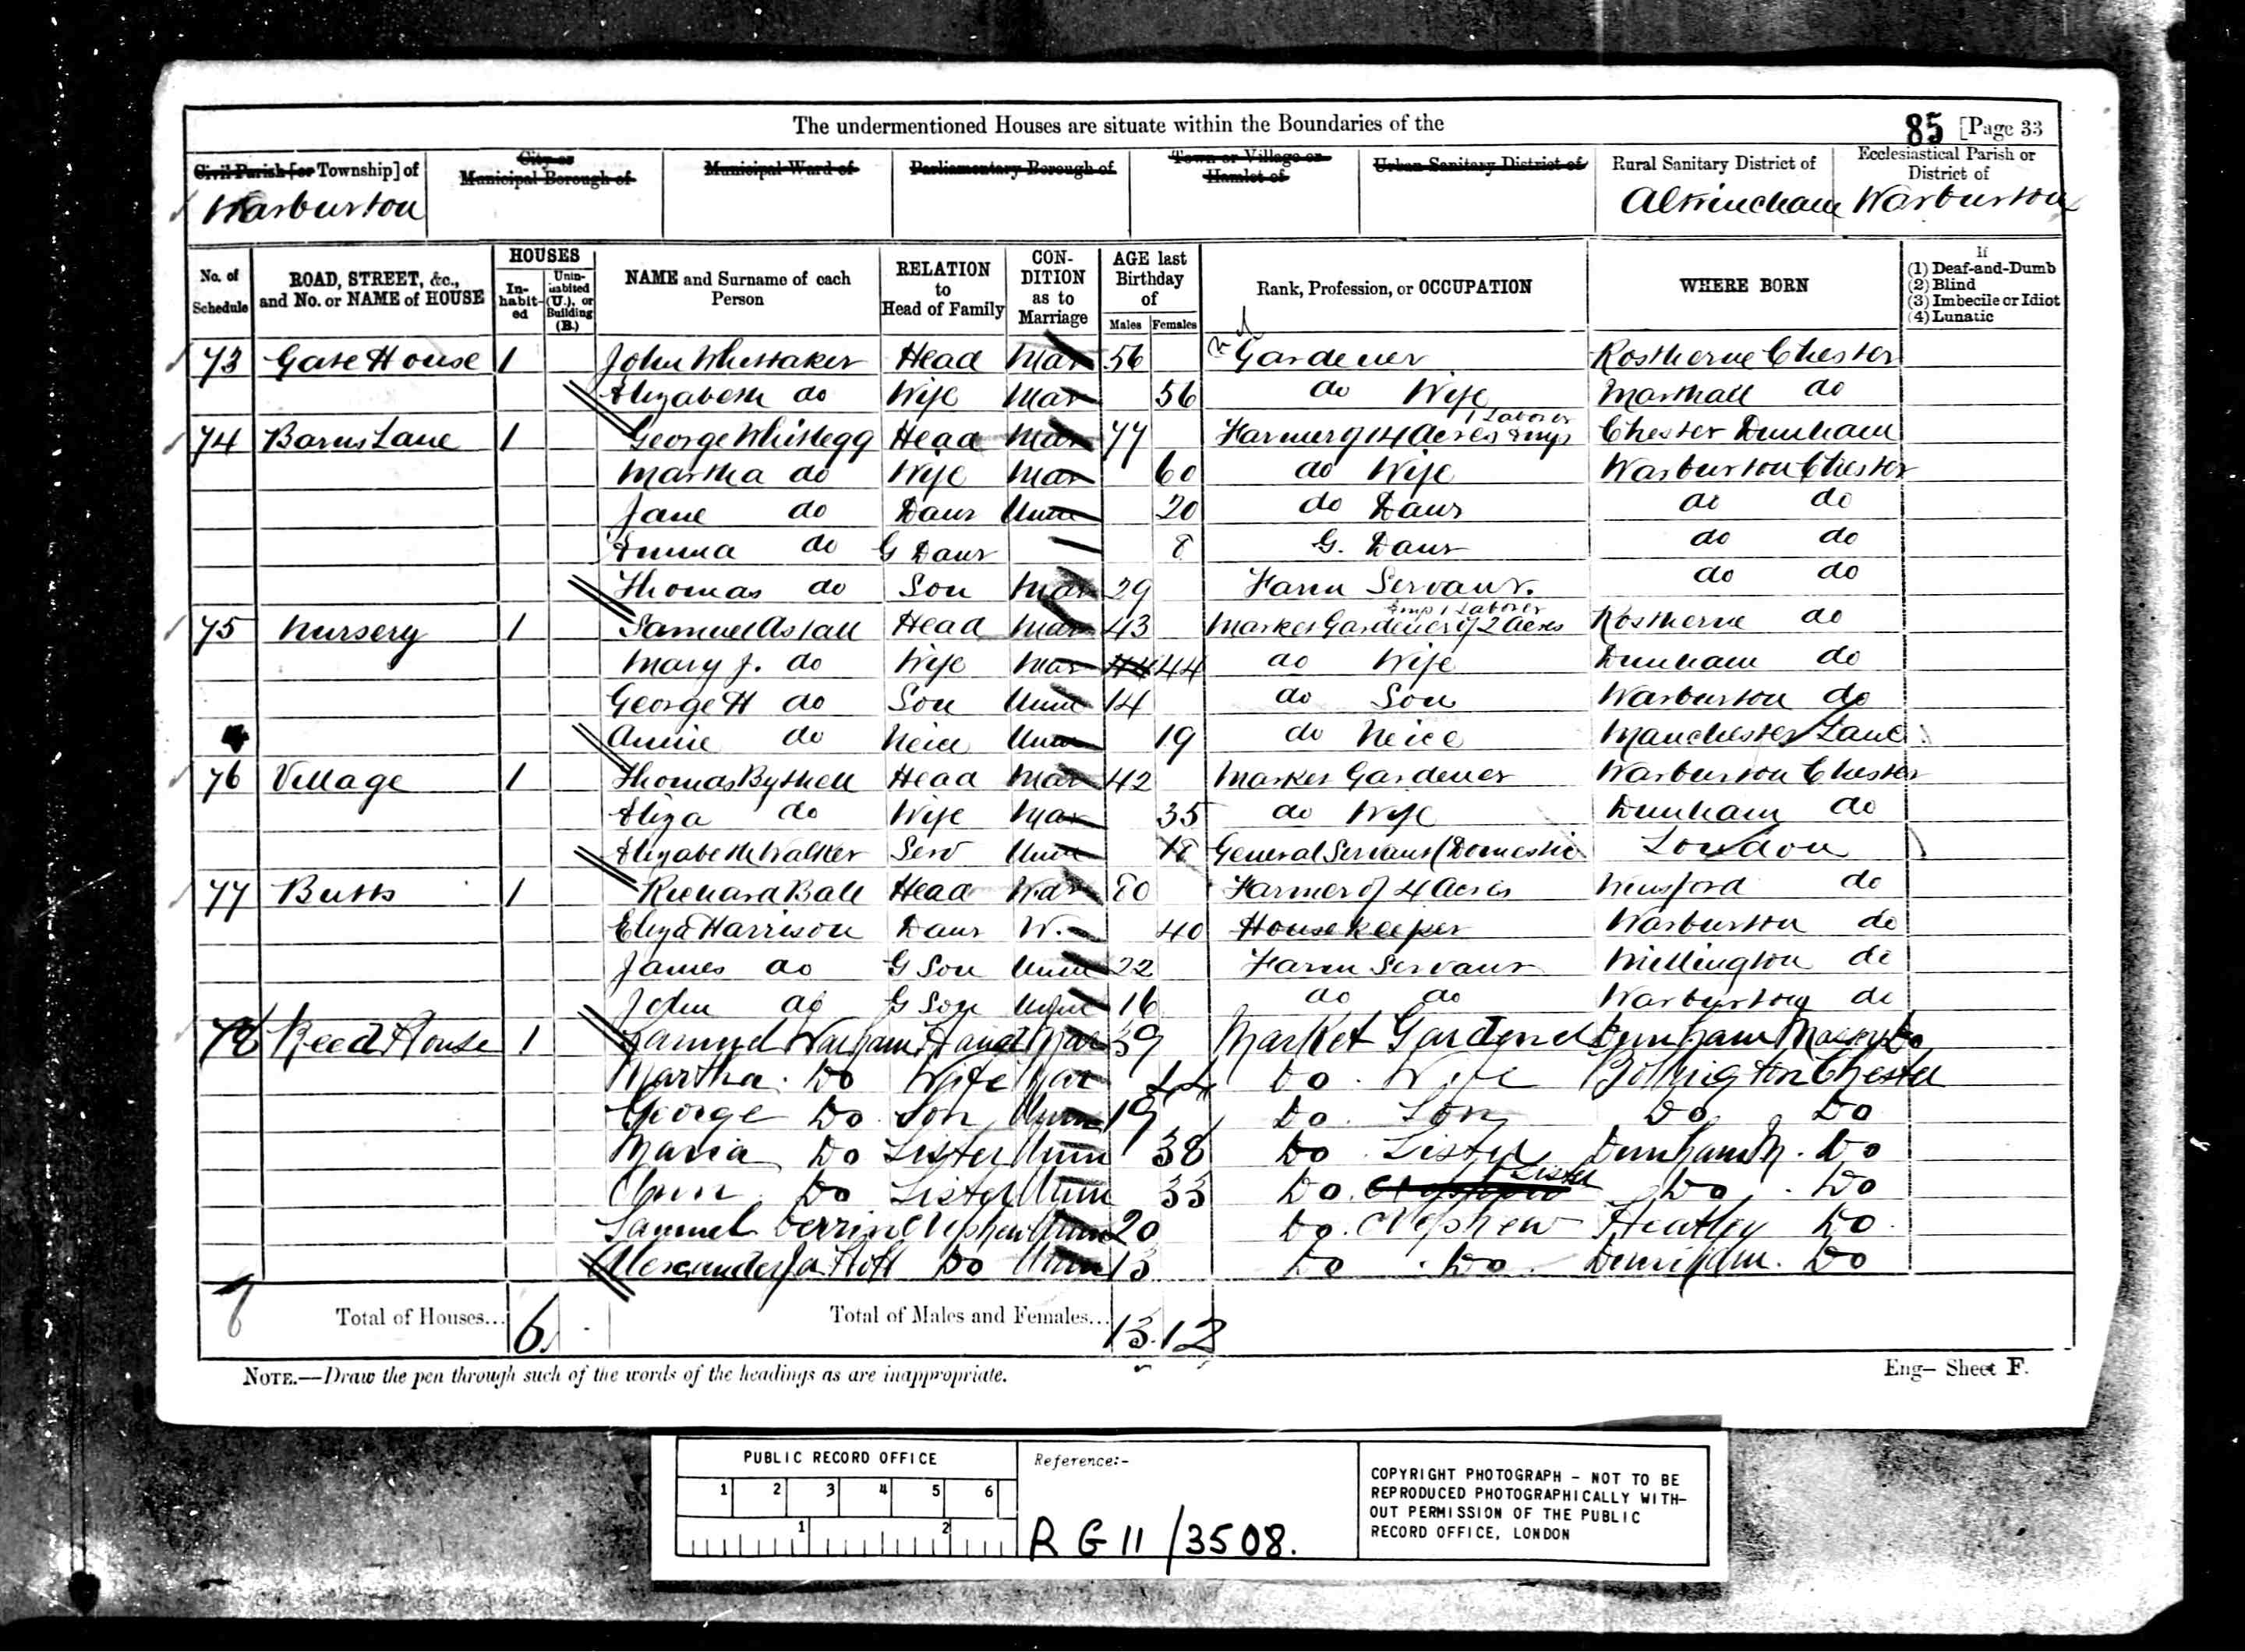 The undermentioned Houses are situate within the Boundaries of the
85 [Page 33
Civil Parish [or Township] of
City or Municipal Borough of
Municipal Ward of
Parliamentary Borough of
Town or Village or Hamlet of
Urban Sanitary District of
Rural Sanitary District of
Ecclesiastical Parish or District of
Warburton Altrincham Warburton
No. of Schedule
ROAD, STREET, &c., and No. or NAME of HOUSE
HOUSES
In-habit-ed
Unin-habited (U.), or Building (B.)
NAME and Surname of each Person
RELATION to Head of Family
CON-DITION as to Marriage
AGE last Birthday of
Males Females
Rank, Profession, or OCCUPATION
WHERE BORN
If
(1) Deaf-and-Dumb
(2) Blind
(3) Imbecile or Idiot
(4) Lunatic
73 Gate House 1 John Whittaker Head Mar 56 Gardener Rostherne Chester
Elizabeth do Wife Mar 56 do Wife Marthall do
74 Barns Lane 1 George Whitlegg Head Mar 77 Farmer of 14 Acres emp 1 Laborer Chester Dunham
Martha do Wife Mar 60 do Wife Warburton Chester
Jane do Daur Unm 20 do Daur do do
Emma do G Daur 8 G. Daur do do
Thomas do Son Mar 29 Farm Servant. do do
75 Nursery 1 Samuel Astall Head Mar 43 Market Gardener of 2 Acres Emp 1 Laborer Rostherne do
Mary J. do Wife Mar 44 44 do Wife Dunham do
George H do Son Unm 14 do Son Warburton do
Annie do Neice Unm 19 do Neice Manchester Lanc
76 Village 1 Thomas Bythell Head Mar 42 Market Gardener Warburton Chester
Eliza do Wife Mar 35 do Wife Dunham do
Elizabeth Walker Serv Unm 18 General Servant (Domestic London
77 Butts 1 Richard Ball Head War 80 Farmer of 4 Acres Winsford do
Eliza Harrison Daur W. 40 Housekeeper Warburton do
James do G Son Unm 22 Farm Servant Millington do
John do G Son Unm 16 do do Warburton do
78 Reed House 1 Samuel Head Mar 39 Market Gardener Dunham Massey Do
Martha Do Wife Mar 44 Do Wife Bollington Chester
George Do Son Unm 19 Do Son Do Do
Maria Do Sister Unm 38 Do Sister Dunham M. Do
Ann Do Sister Unm 33 Do Sister Do Do
Samuel Nephew Unm 20 Do Nephew Heatley Do
Alexander Do Unm 13 Do Do Dunham. Do
Total of Houses... 6
Total of Males and Females... 13 12
NOTE.—Draw the pen through such of the words of the headings as are inappropriate.
Eng— Sheet F.
PUBLIC RECORD OFFICE
1 2 3 4 5 6
1 2
Reference:-
RG 11/3508.
COPYRIGHT PHOTOGRAPH - NOT TO BE
REPRODUCED PHOTOGRAPHICALLY WITH-
OUT PERMISSION OF THE PUBLIC
RECORD OFFICE, LONDON